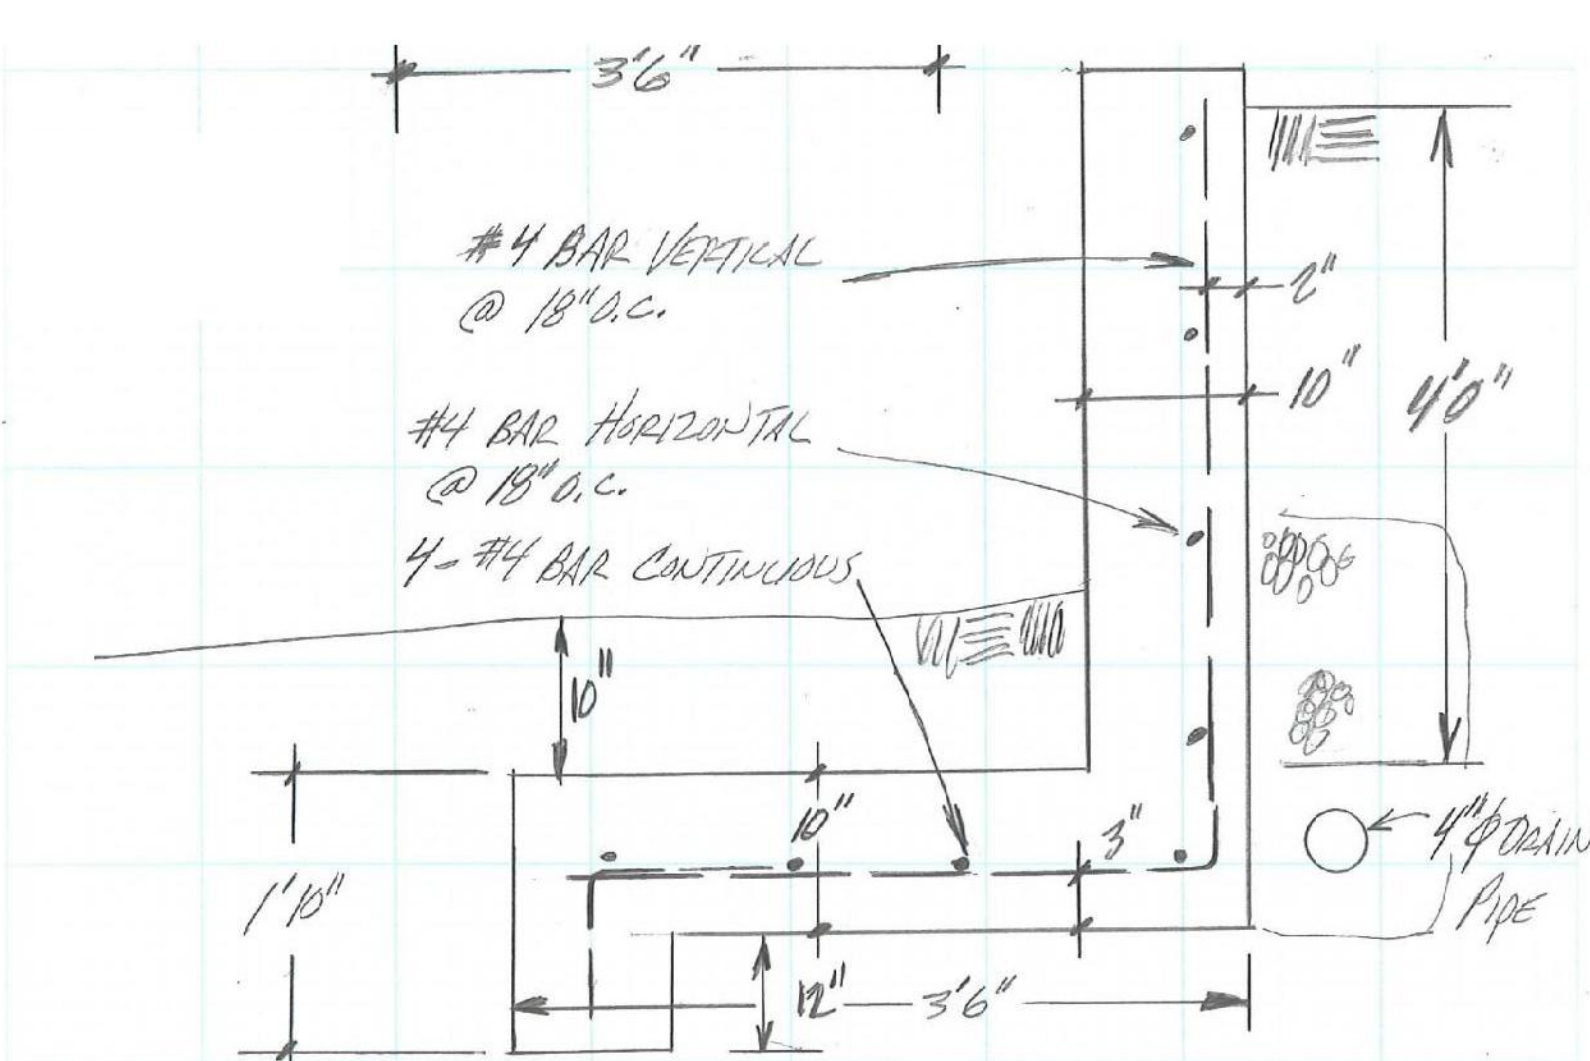 3'6"
#4 BAR VERTICAL
@ 18" O.C.
2"
10"
4'0"
#4 BAR HORIZONTAL
@ 18" O.C.
4-#4 BAR CONTINUOUS
10"
10"
3"
4"φ DRAIN
PIPE
1'10"
12"
3'6"